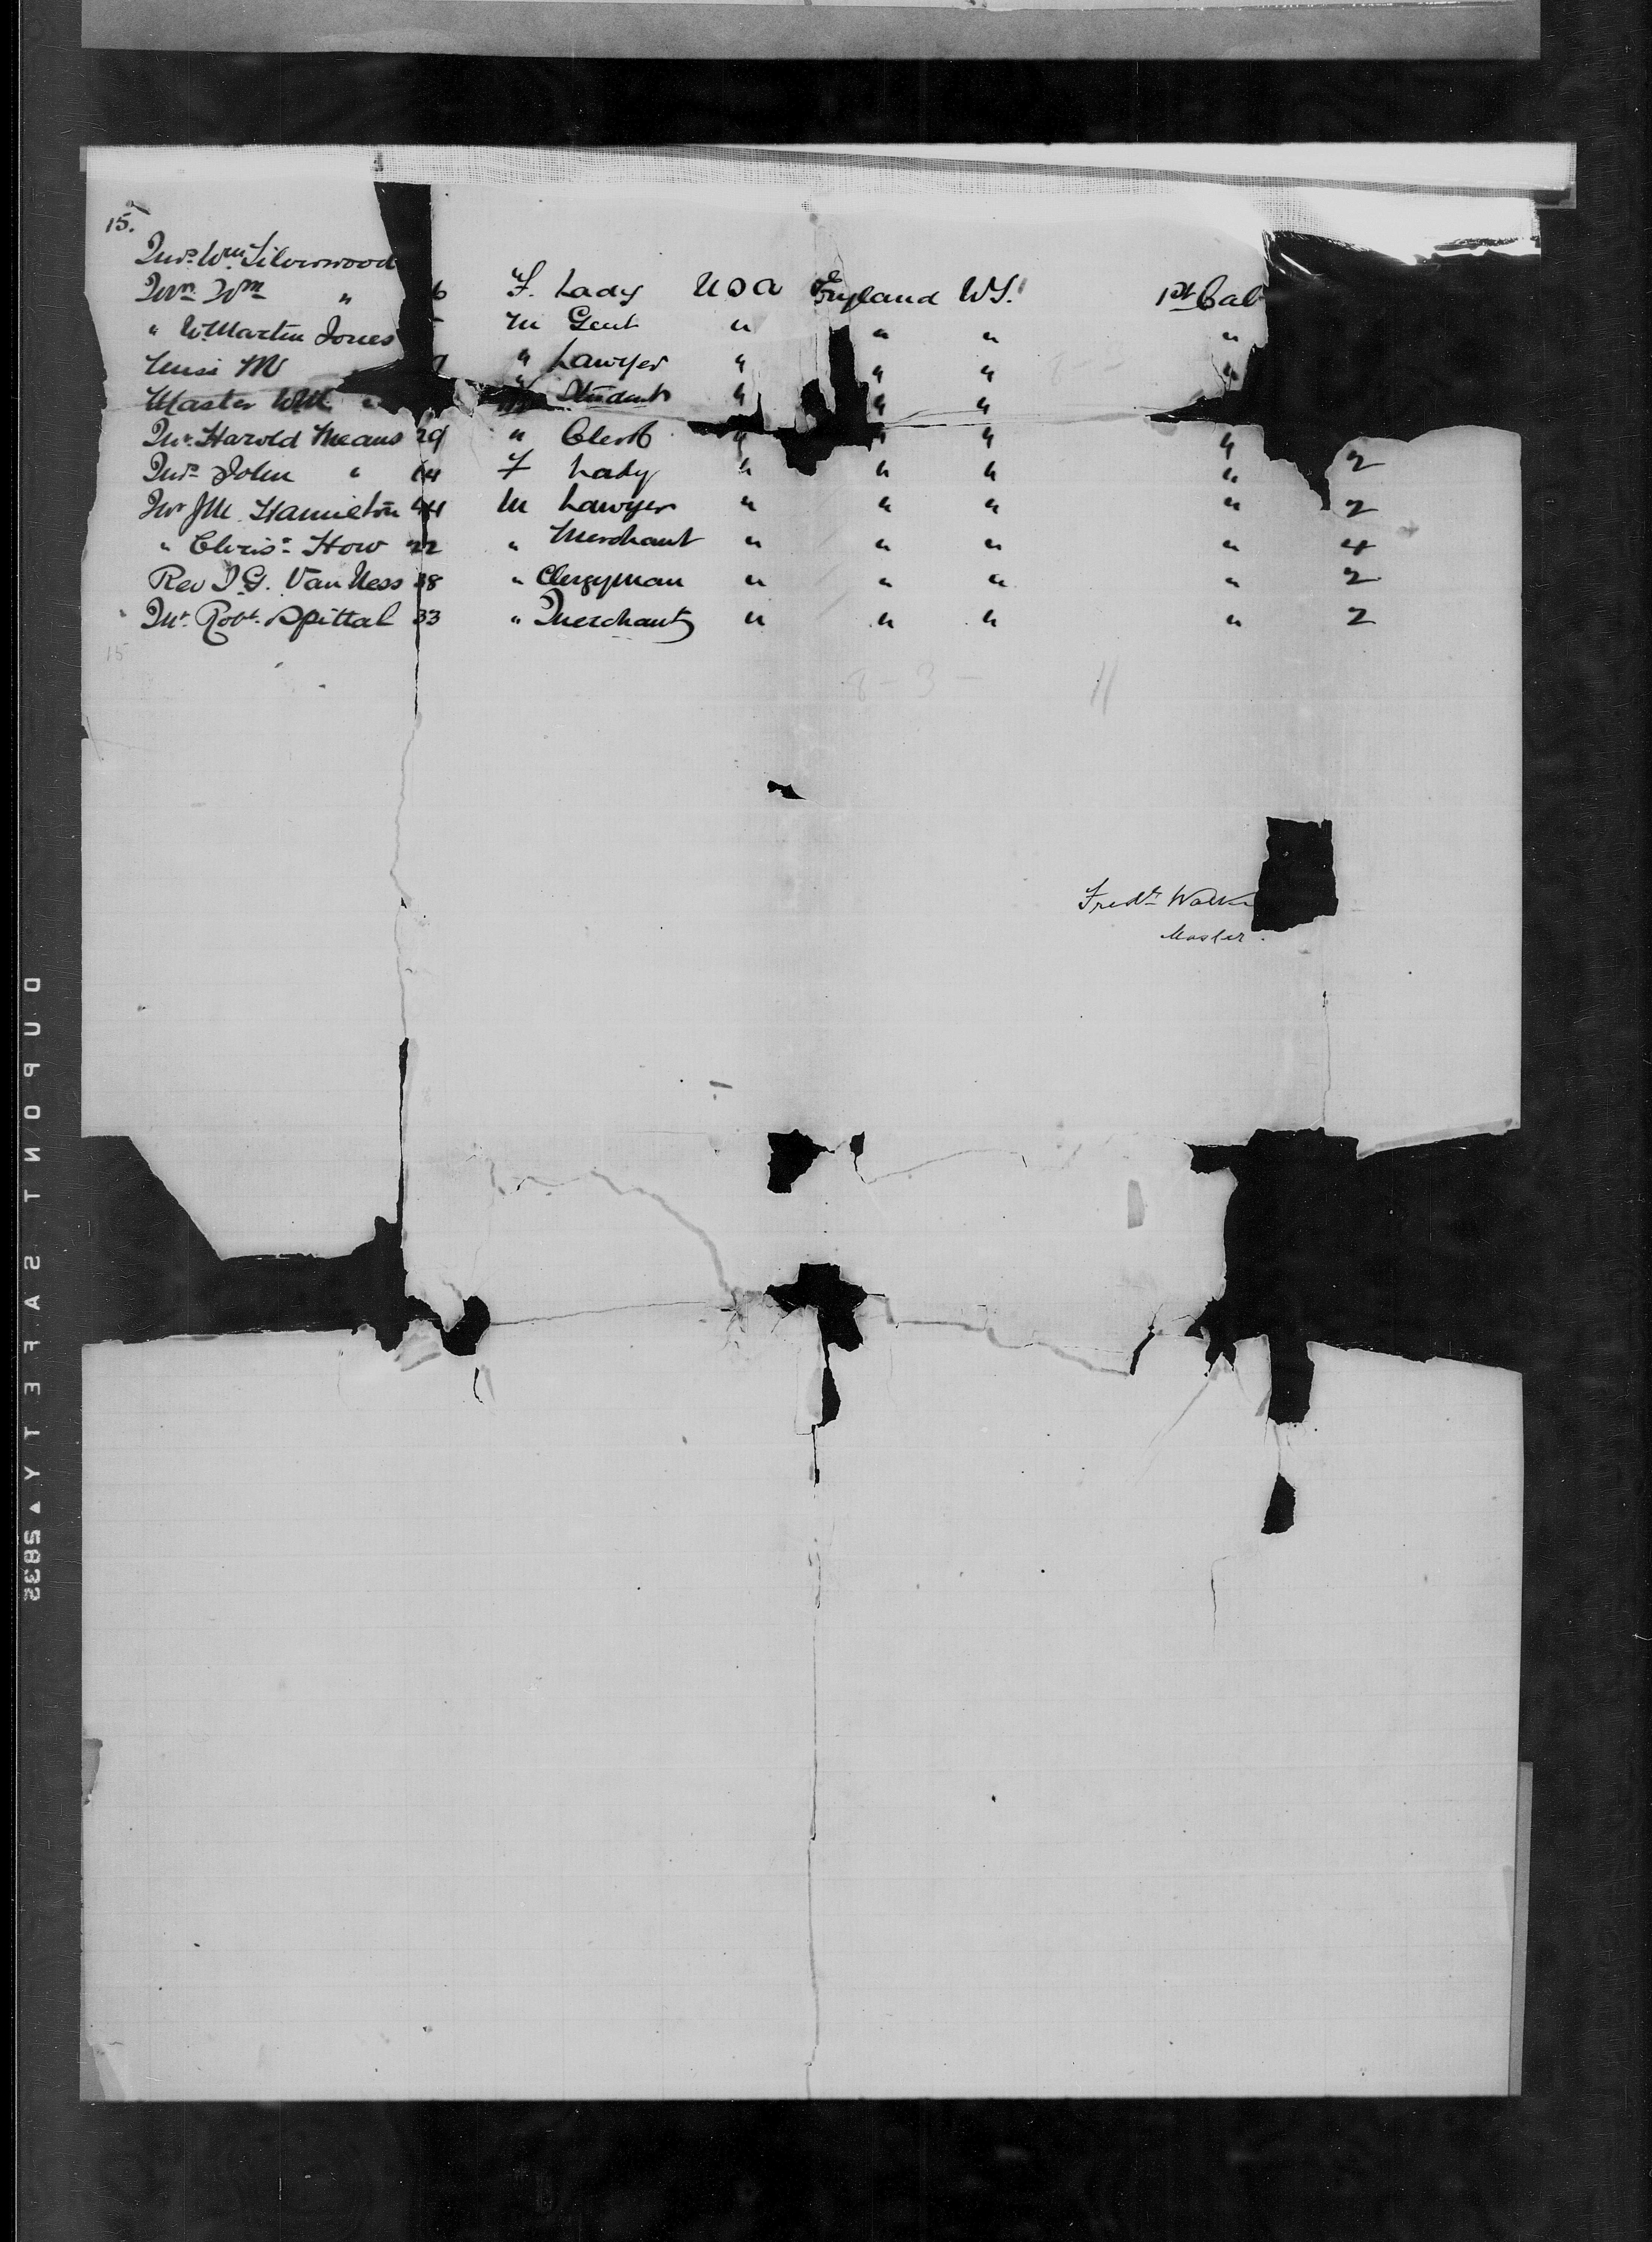 15.
Mrs. Wm. Silverwood
Mr. Wm " 6 F. Lady USA England W.S. 1st Cab
" W. Martin Jones M Gent " " " "
Miss M 9 " Lawyer " " " "
Master Wm. " Student " " "
Mr. Harold Means 29 " Clerk " " " " 2
Mrs. John " 64 F Lady " " " "
Mr J.M. Hamilton 44 M Lawyer " " " " 2
" Chris: How 22 " Merchant " " " " 4
Rev I.G. Van Ness 38 " Clergyman " " " " 2
Mr. Robt. Spittal 33 " Merchant " " " " 2
15
8 - 3 - 11
Fredk Walke
Master.
SAFETY ▲ 5835
DUPONT